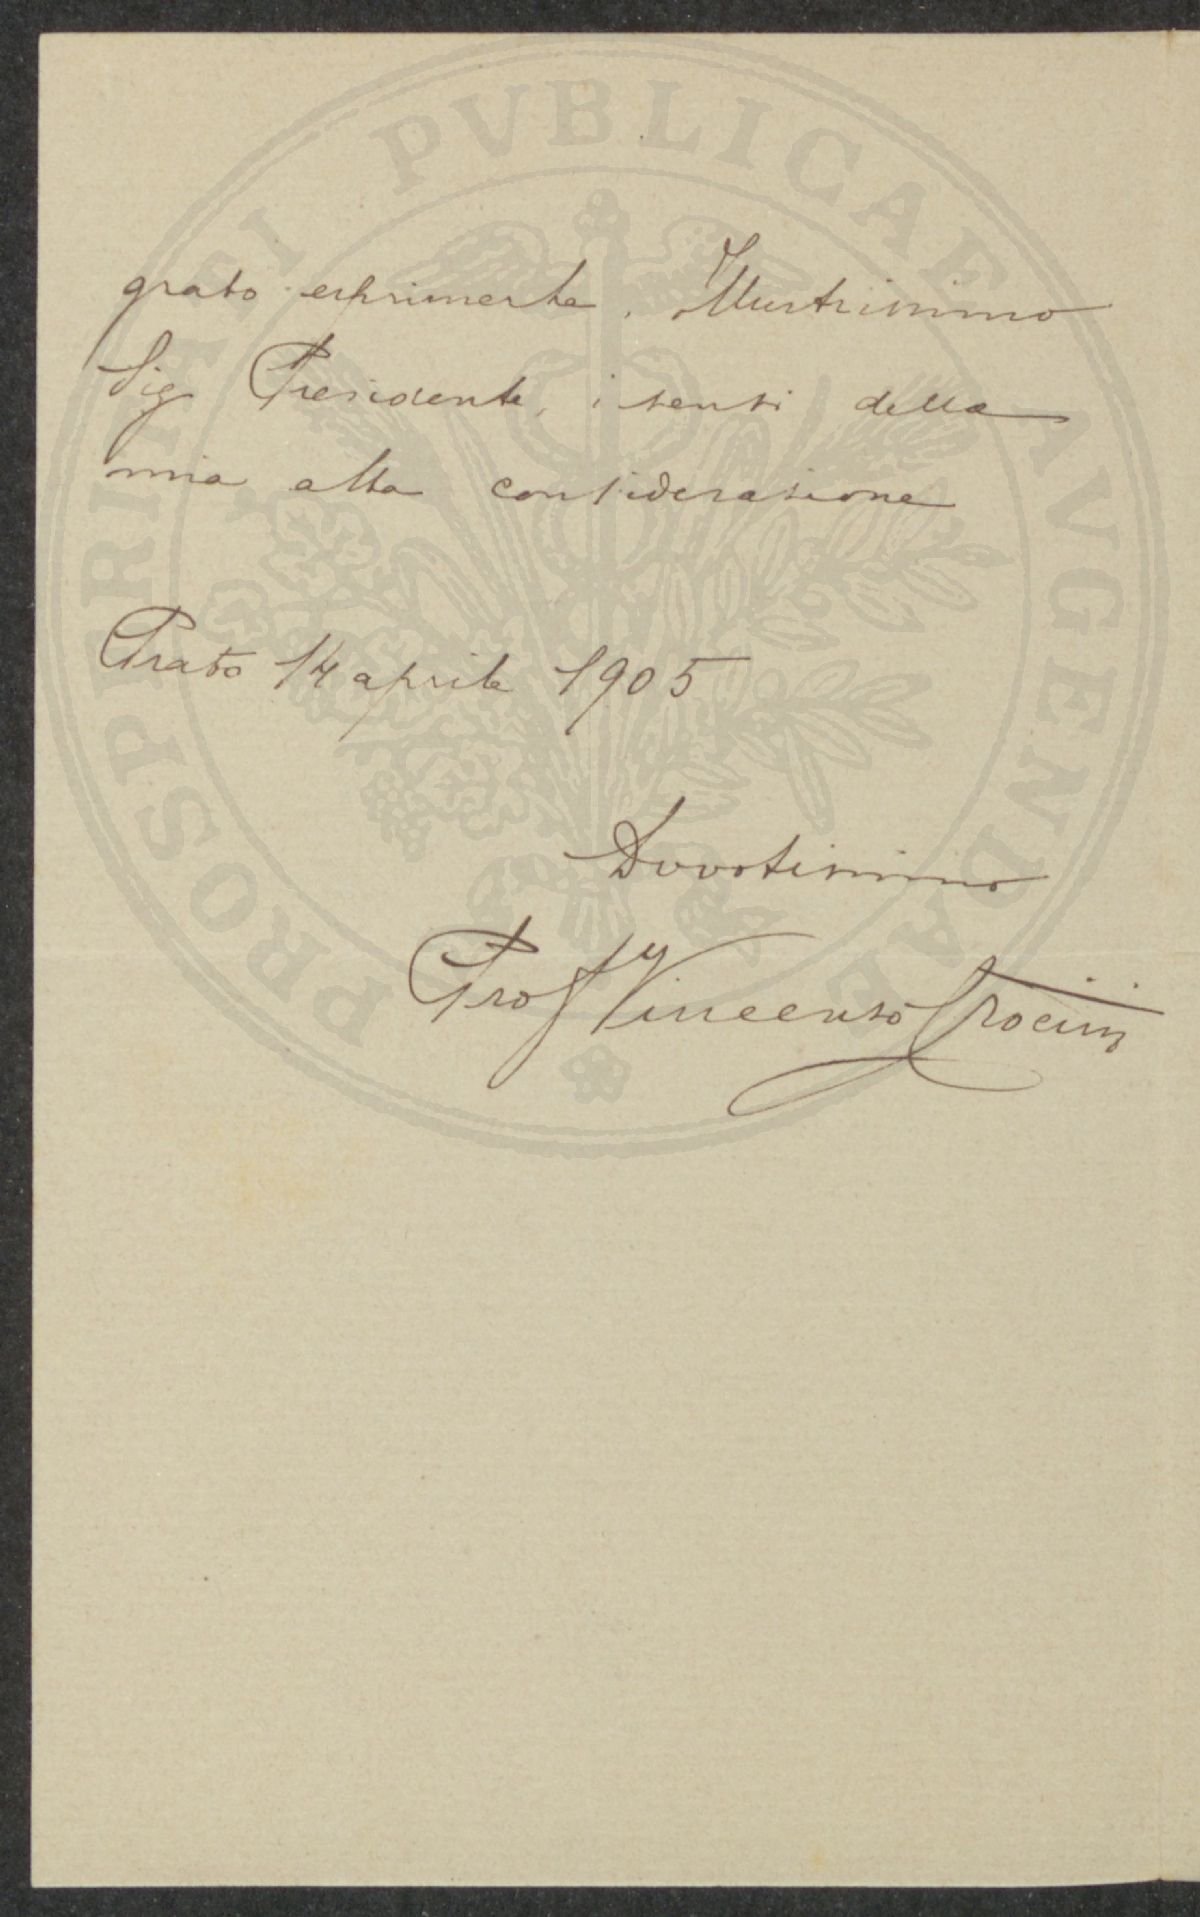 grato esprimerle, Illustrissimo
Sig Presidente, i sensi della
mia alta considerazione
Prato 14 aprile 1905
Devotissimo
Prof Vincenzo Crocini
PROSPERITATI PVBLICAE AVGENDAE